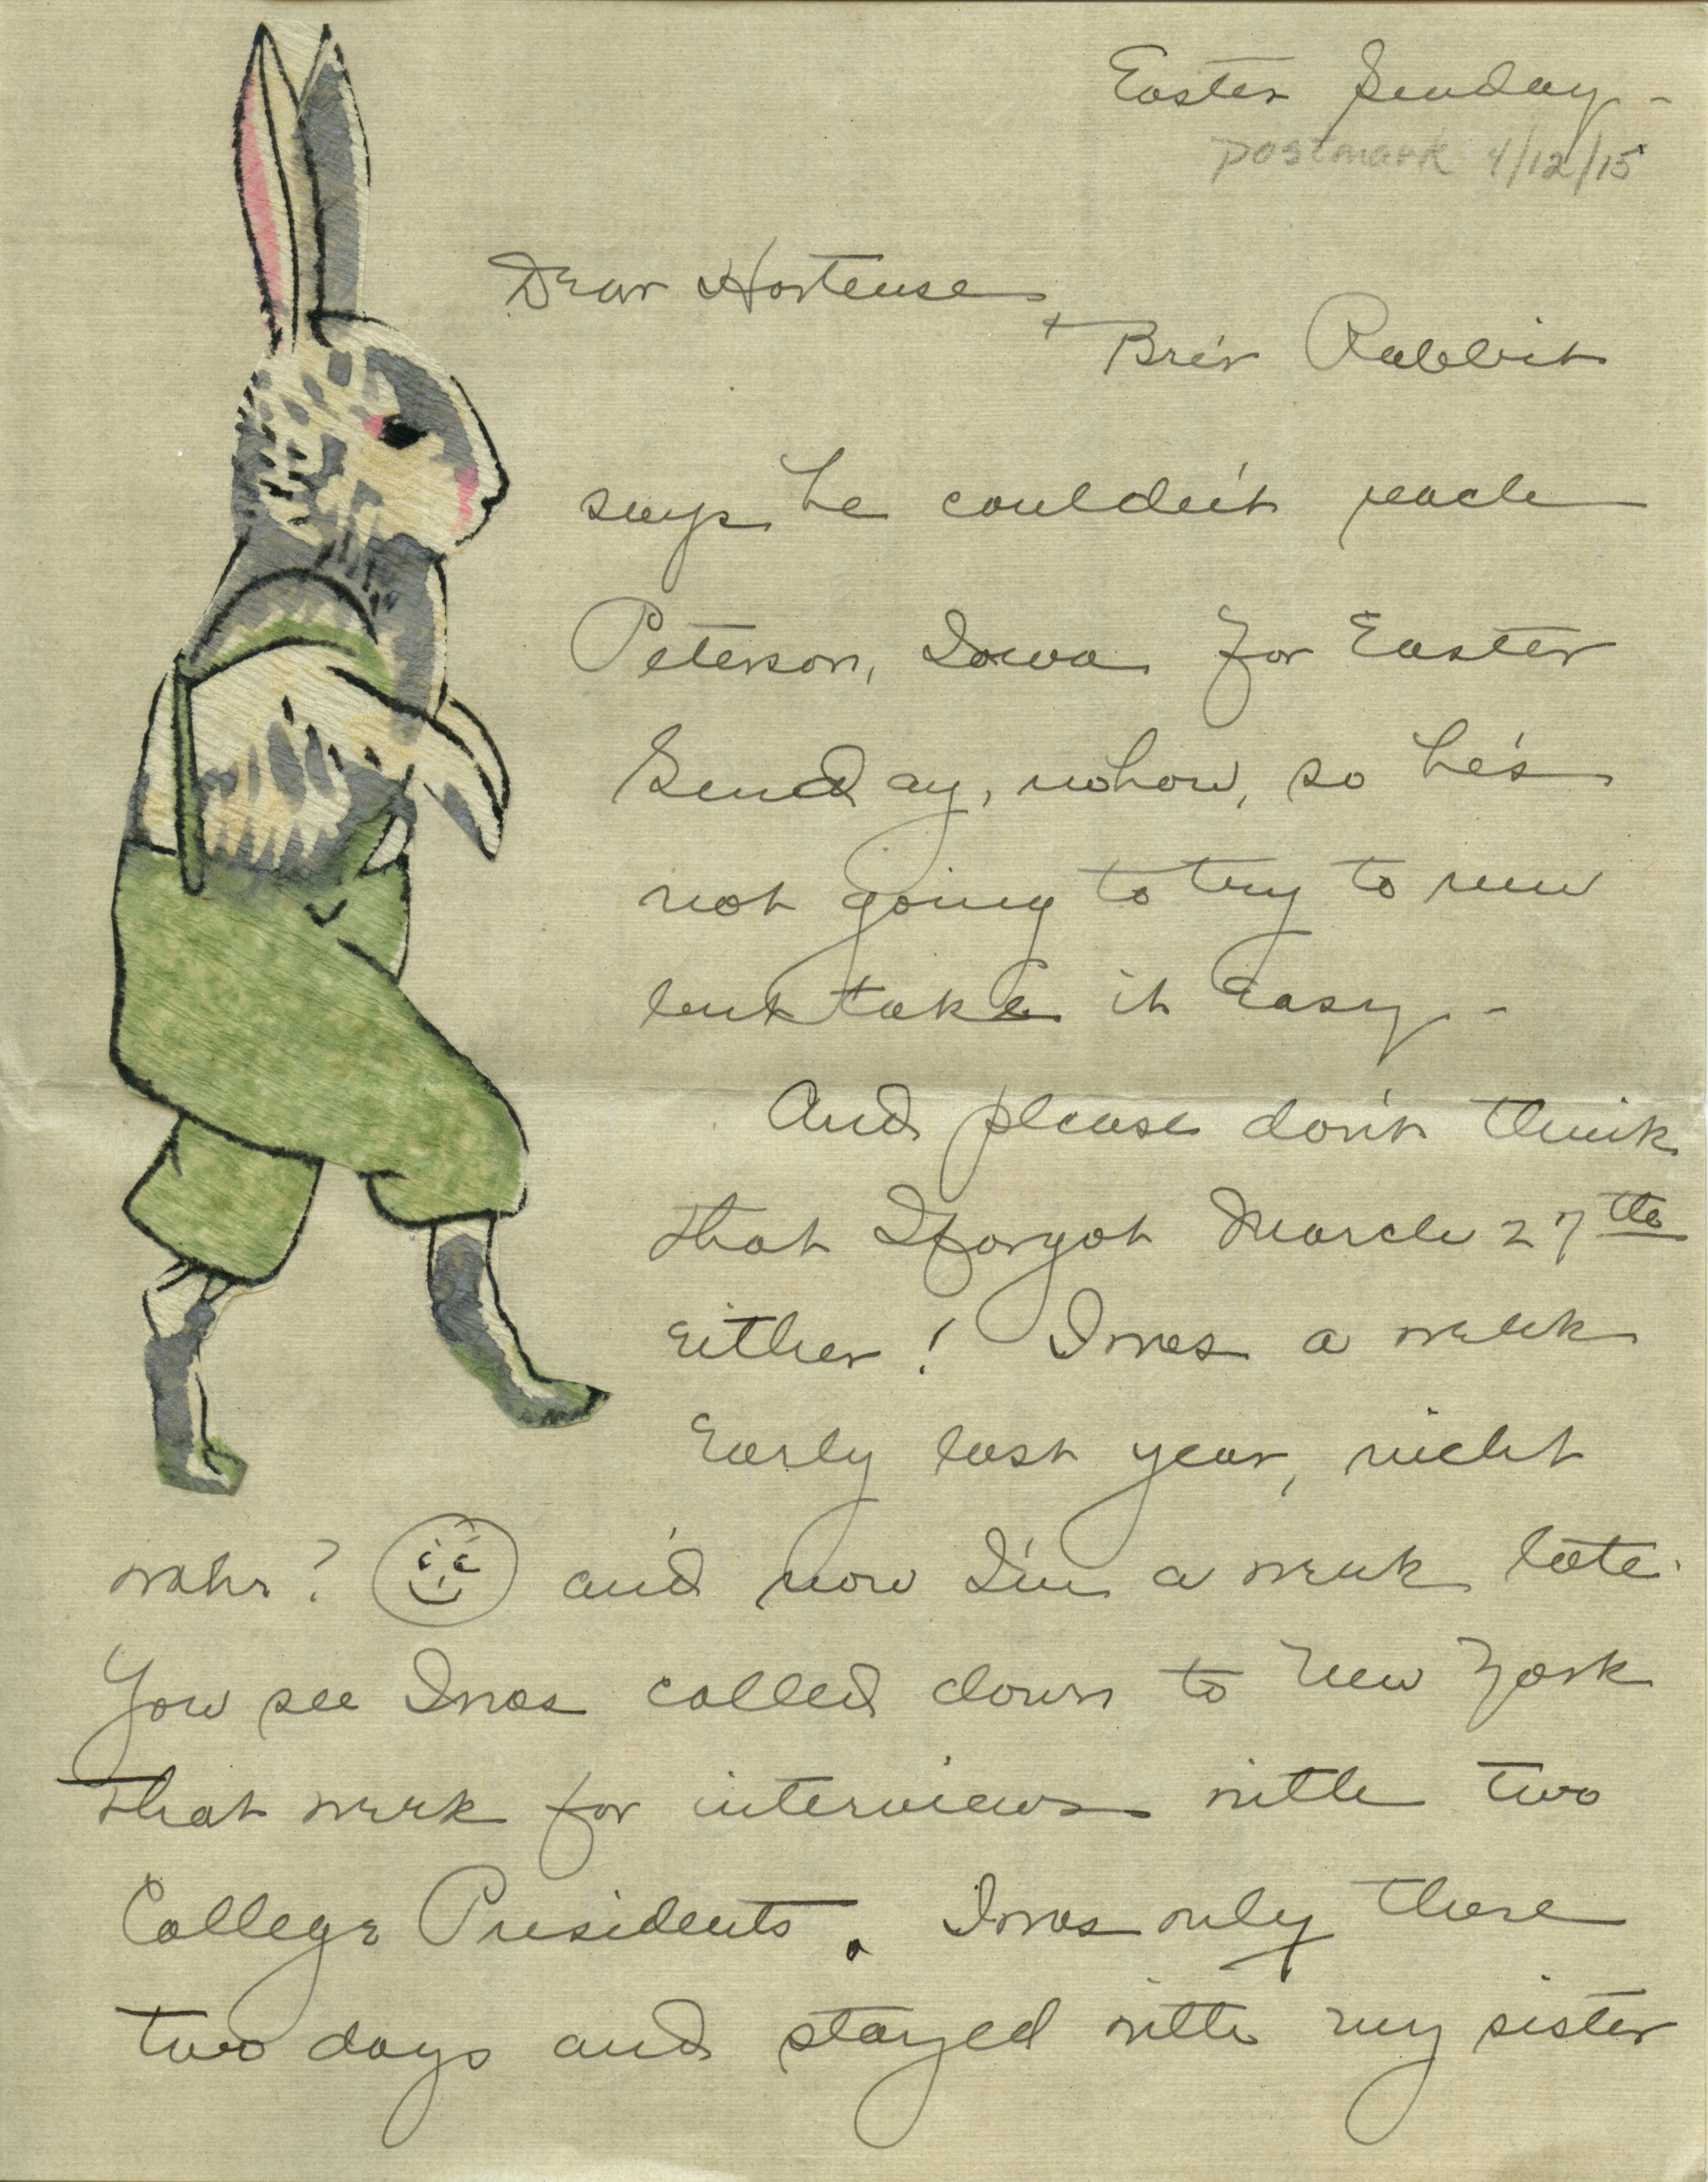 Easter Sunday -
postmark 4/12/15
Dear Hortense,
Brer Rabbit
says he couldn't reach
Peterson, Iowa for Easter
Sunday, nohow, so he's
not going to try to run
but take it Easy -
And please don't think
that I forgot March 27th
either! I was a week
Early last year, nicht
wahr? and now I'm a week late.
You see I was called down to New York
that week for interviews with two
College Presidents. I was only there
two days and stayed with my sister